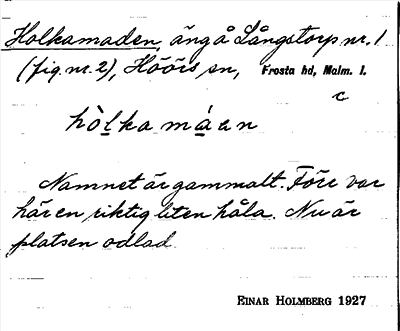 Holkamaden, äng å Långstorp nr. 1
(fig. nr. 2), Höörs sn, Frosta hd, Malm. l.
c
hòlka máen
Namnet är gammalt. Förr var
här en riktig liten håla. Nu är
platsen odlad.
EINAR HOLMBERG 1927